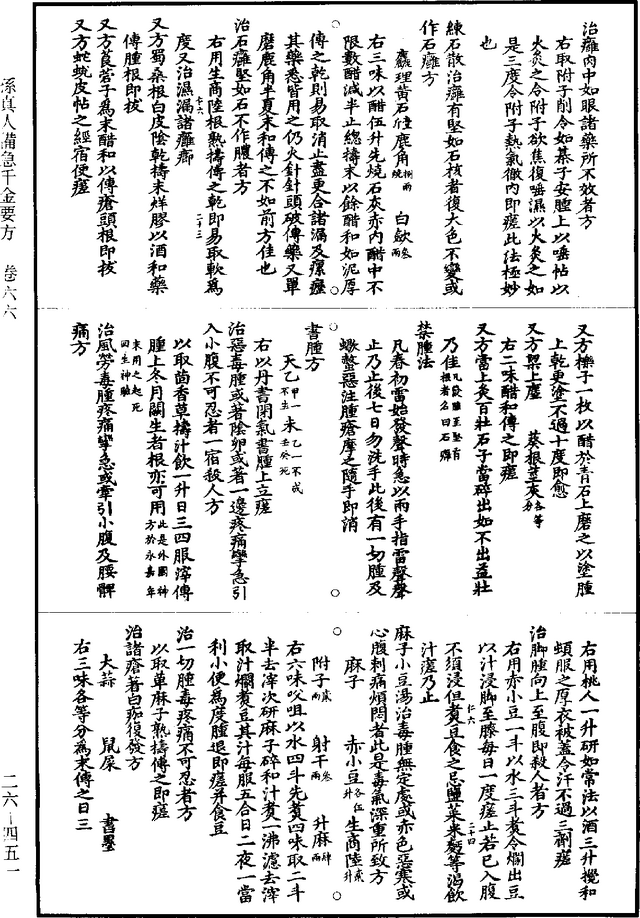 治癰肉中如眼諸藥所不效者方
右取附子削令如棊子安腫上以唾帖以
火灸之令附子欲焦復唾濕以火灸之如
是三度令附子熱氣徹內即瘥此法極妙
也
練石散治癰有堅如石核者復大色不變或
作石癰方
麤理黃石斤 鹿角捌兩燒 白歛叁兩
右三味以酢伍升先燒石灰赤內酢中不
限數醋減半止總擣末以餘酢和如泥厚
傅之乾則易取消止盡更合諸漏及瘰癧
其藥悉皆用之仍火針針頭破傅藥又單
磨鹿角半夏末和傅之不如前方佳也
治石癰堅如石不作膿者方
右用生商陸根熟擣傅之乾即易取軟為
度又治濕漏諸癰癤
又方蜀桑根白皮陰乾擣末烊膠以酒和藥
傅腫根即拔
又方莨菪子為末醋和以傅瘡頭根即拔
又方蛇蛻皮帖之經宿便瘥
又方櫟子一枚以醋於青石上磨之以塗腫
上乾更塗不過十度即愈
又方梁上塵 葵根莖灰各等分
右二味醋和傅之即瘥
又方當上灸百壯石子當碎出如不出益壯
乃佳凡發腫至堅有根者名曰石癰
禁腫法
凡春初雷始發聲時急以兩手指雷聲聲
止乃止後七日勿洗手此後有一切腫及
蠍螫惡注腫瘡摩之隨手即消
書腫方
天乙甲一不生 未乙一不成壬癸死
右以丹書閉氣書腫上立瘥
治惡毒腫或著陰卵或著一邊疼痛攣急引
入小腹不可忍者一宿殺人方
以取茴香草擣汁飲一升日三四服滓傅
腫上冬月闕生者根亦可用此是外國神方於永嘉年末用之起死回生神驗
治風勞毒腫疼痛攣急或牽引小腹及腰髀
痛方
右用桃人一升研如常法以酒三升攪和
頓服之厚衣被蓋令汗不過三劑瘥
治腳腫向上至腹即殺人者方
右用赤小豆一斗以水三斗煮令爛出豆
以汁浸腳至膝每日一度瘥止若已入腹
不須浸但煮豆食之忌鹽菜米麪等渴飲
汁瘥乃止
麻子小豆湯治毒腫無定處或赤色惡寒或
心腹刺痛煩悶者此是毒氣深重所致方
麻子 赤小豆各伍升 生商陸升
附子兩 射干叁兩 升麻肆兩
右六味㕮咀以水四斗先煮四味取二斗
半去滓次研麻子碎和汁煮一沸濾去滓
取汁爛煮豆其汁每服五合日二夜一當
利小便為度腫退即瘥并食豆
治一切腫毒疼痛不可忍者方
以取蓖麻子熟擣傅之即瘥
治諸瘡著白痂復發方
大蒜 鼠屎 書墨
右三味各等分為末傅之日三
孫真人備急千金要方 卷六六
二六－四五一